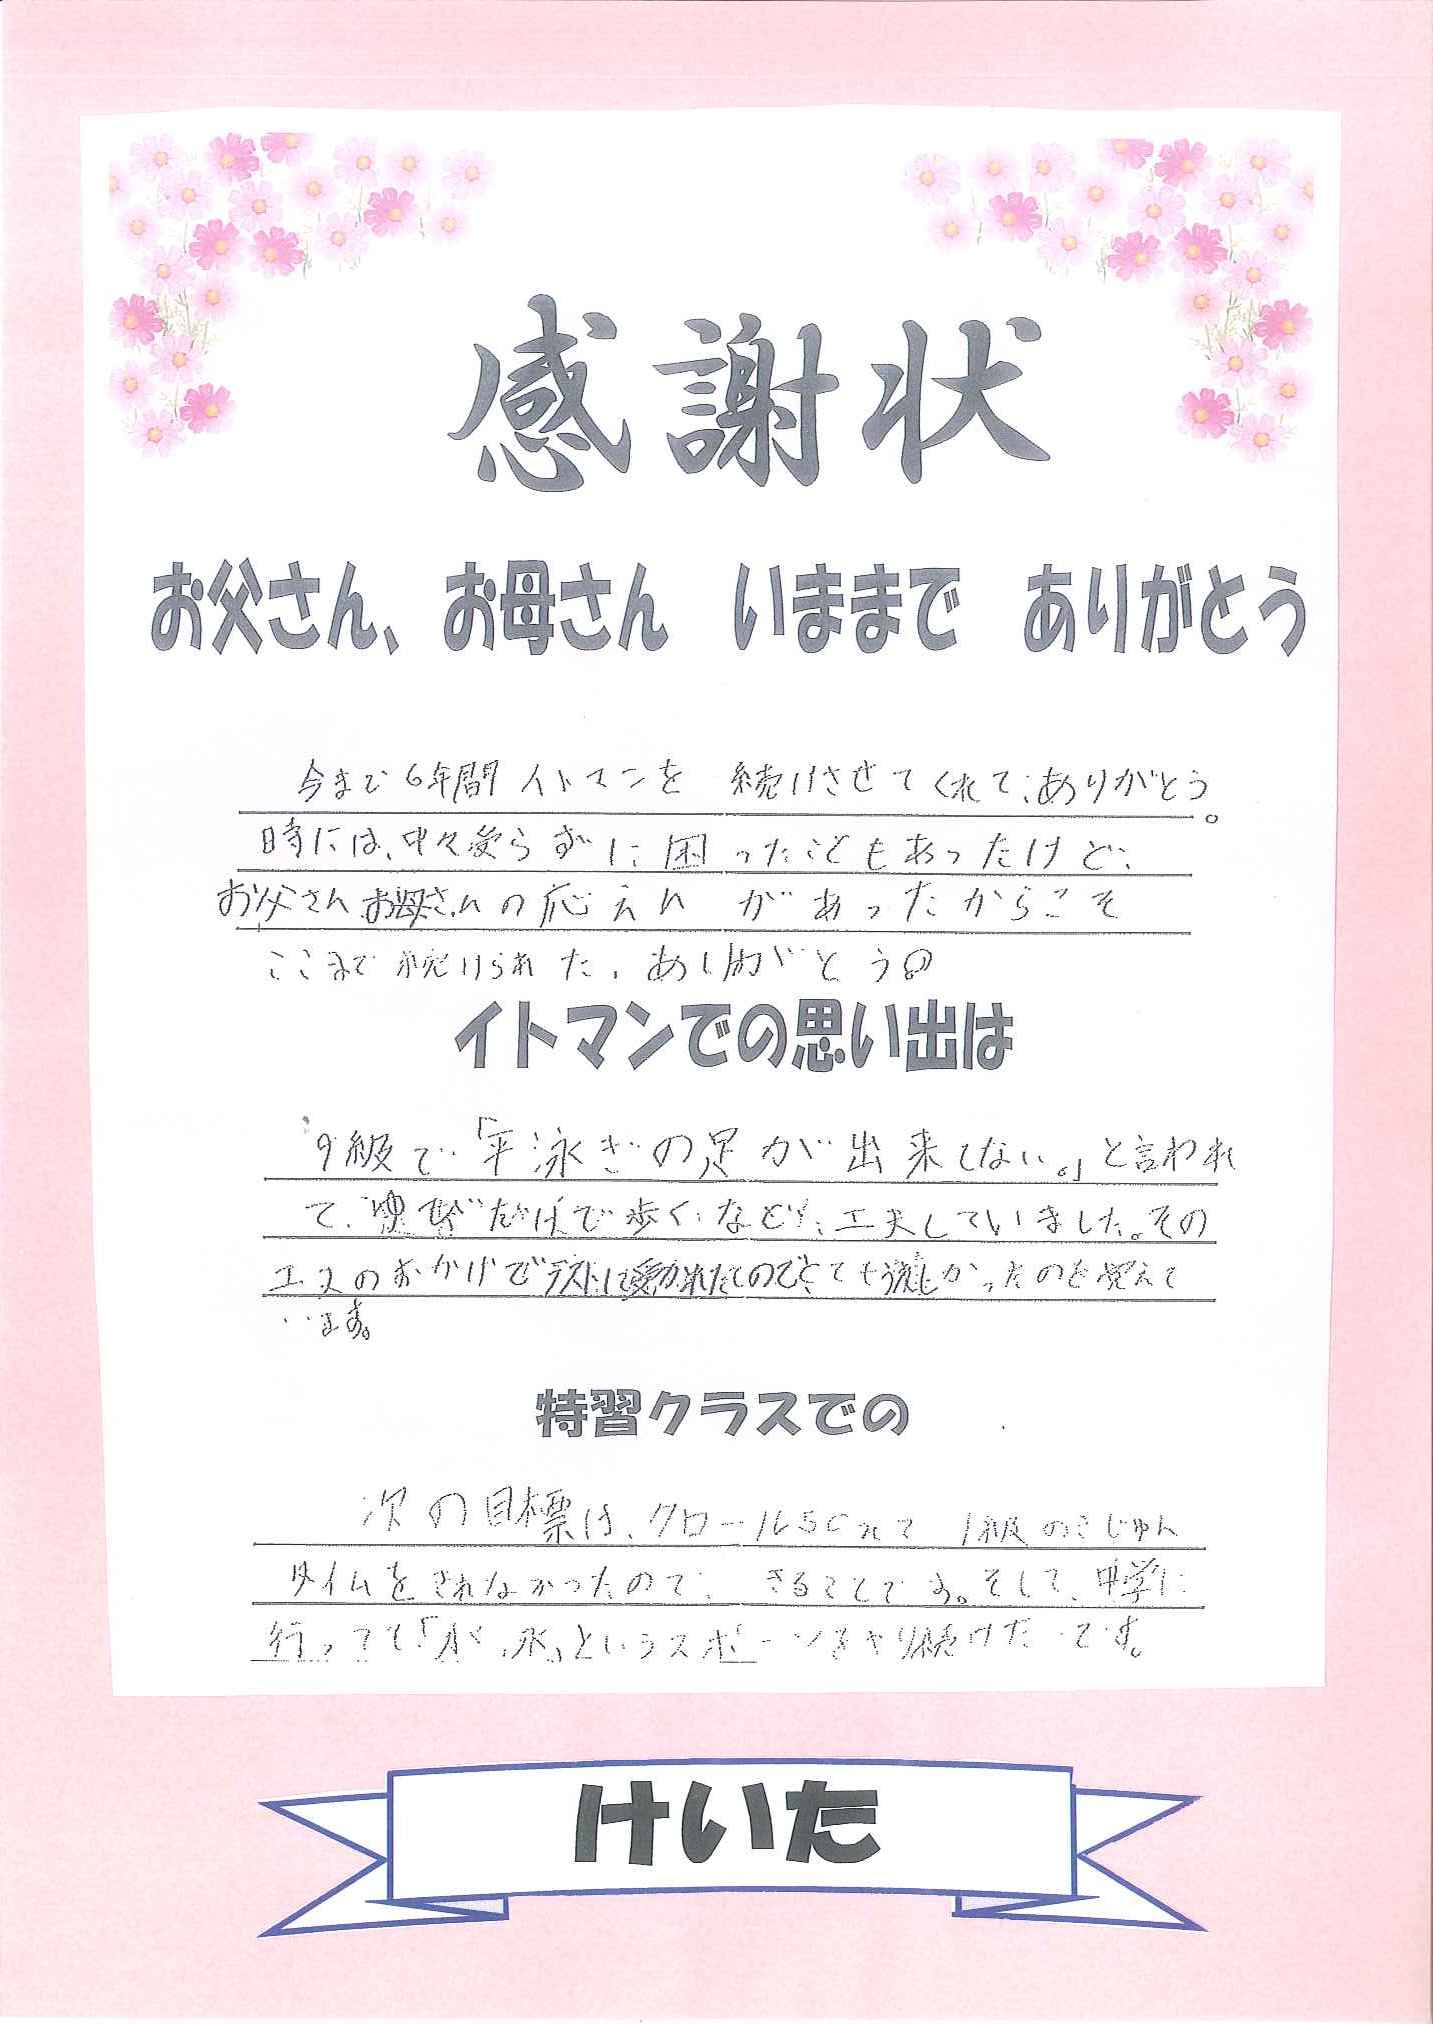 感謝状
お父さん、お母さん いままで ありがとう
今まで6年間イトマンを 続けさせてくれて、ありがとう。
時には、中々受らずに困ったこともあったけど、
お父さんお母さんの応えんがあったからこそ
ここまで続けられた。ありがとう
イトマンでの思い出は
9級で「平泳ぎの足が出来てない。」と言われ
て、だけで歩くなど、工夫していました。その
工夫のおかげでテストに受かれたのでとてもかったのを覚えて
います。
特習クラスでの
次の目標は、クロール50mで1級のきじゅん
タイムをきれなかったので、きることです。そして、中学に
行って「水泳」というスポーツをやり続けたいです。
けいた